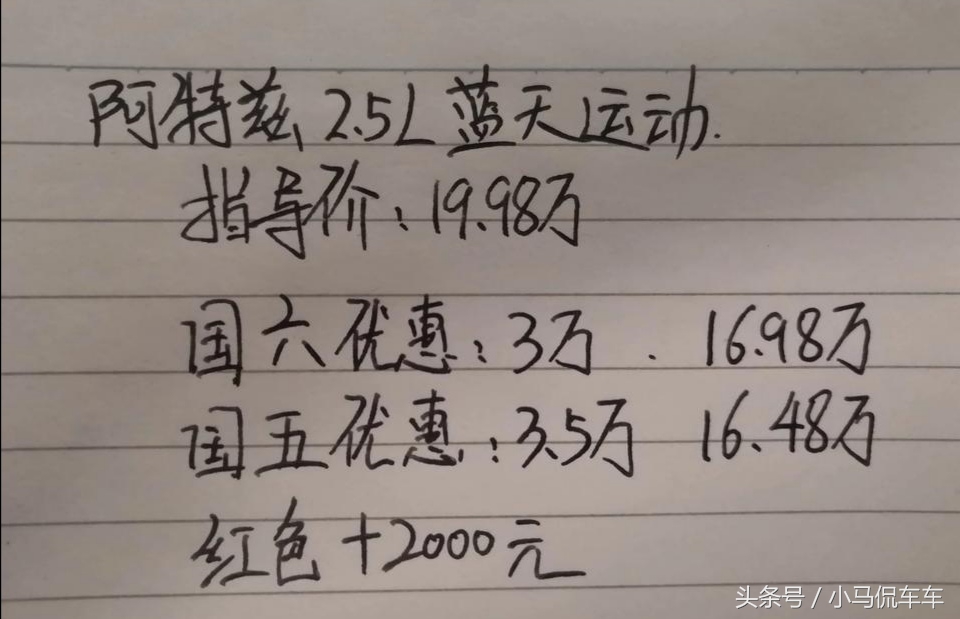 阿特兹 2.5L 蓝天运动.
指导价: 19.98万
国六优惠: 3万. 16.98万
国五优惠: 3.5万 16.48万
红色+2000元
头条号 / 小马侃车车